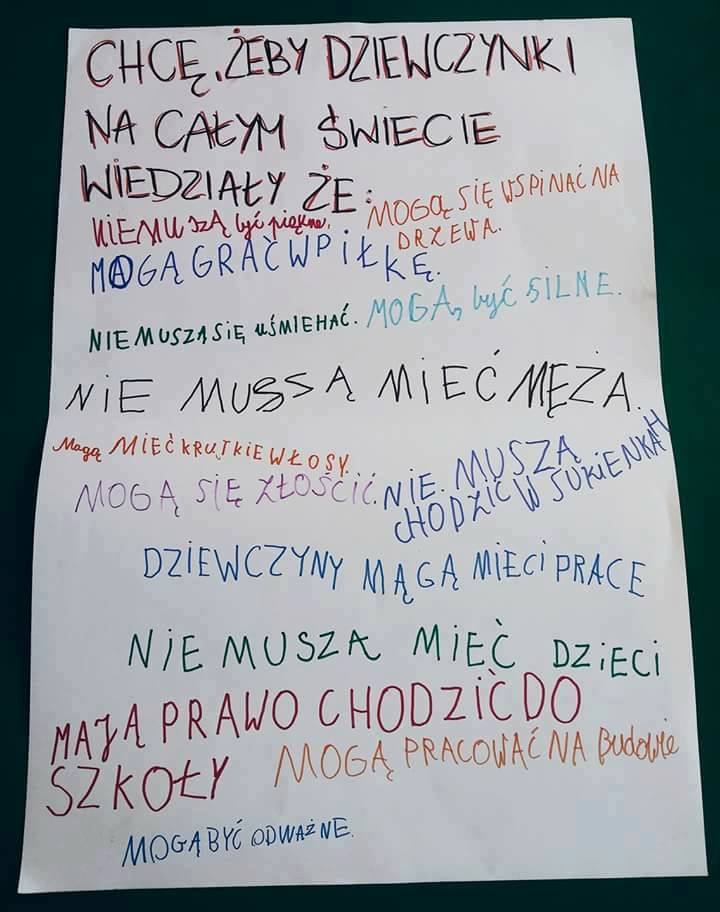 CHCĘ, ŻEBY DZIEWCZYNKI
NA CAŁYM ŚWIECIE
WIEDZIAŁY ŻE:
NIEMUSZĄ być piękne.
MOGĄ SIĘ WSPINAĆ NA
DRZEWA.
MAGĄ GRAĆ W PIŁKĘ.
NIE MUSZĄ SIĘ UŚMIEHAĆ.
MOGĄ być SILNE.
NIE MUSSĄ MIEĆ MĘŻA.
Magą MIEĆ KRUTKIE WŁOSY.
MOGĄ SIĘ ZŁOŚCIĆ.
NIE MUSZĄ
CHODZIĆ W SUKIENKAH
DZIEWCZYNY MĄGĄ MIECI PRACE
NIE MUSZĄ MIEĆ DZIECI
MAJĄ PRAWO CHODZIĆ DO
SZKOŁY
MOGĄ PRACOWAĆ NA BUDOWIE
MOGĄ BYĆ ODWAŻNE.